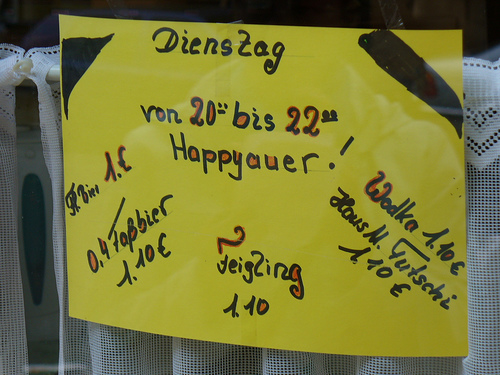 Dienstag
von 20⁰⁰ bis 22⁰⁰
Happyauer!
Fl. Bier 1.€
0,4 Faßbier
1.10€
Feigling
1.10
Wodka 1.10€
Haus M. Tutschi
1.10€